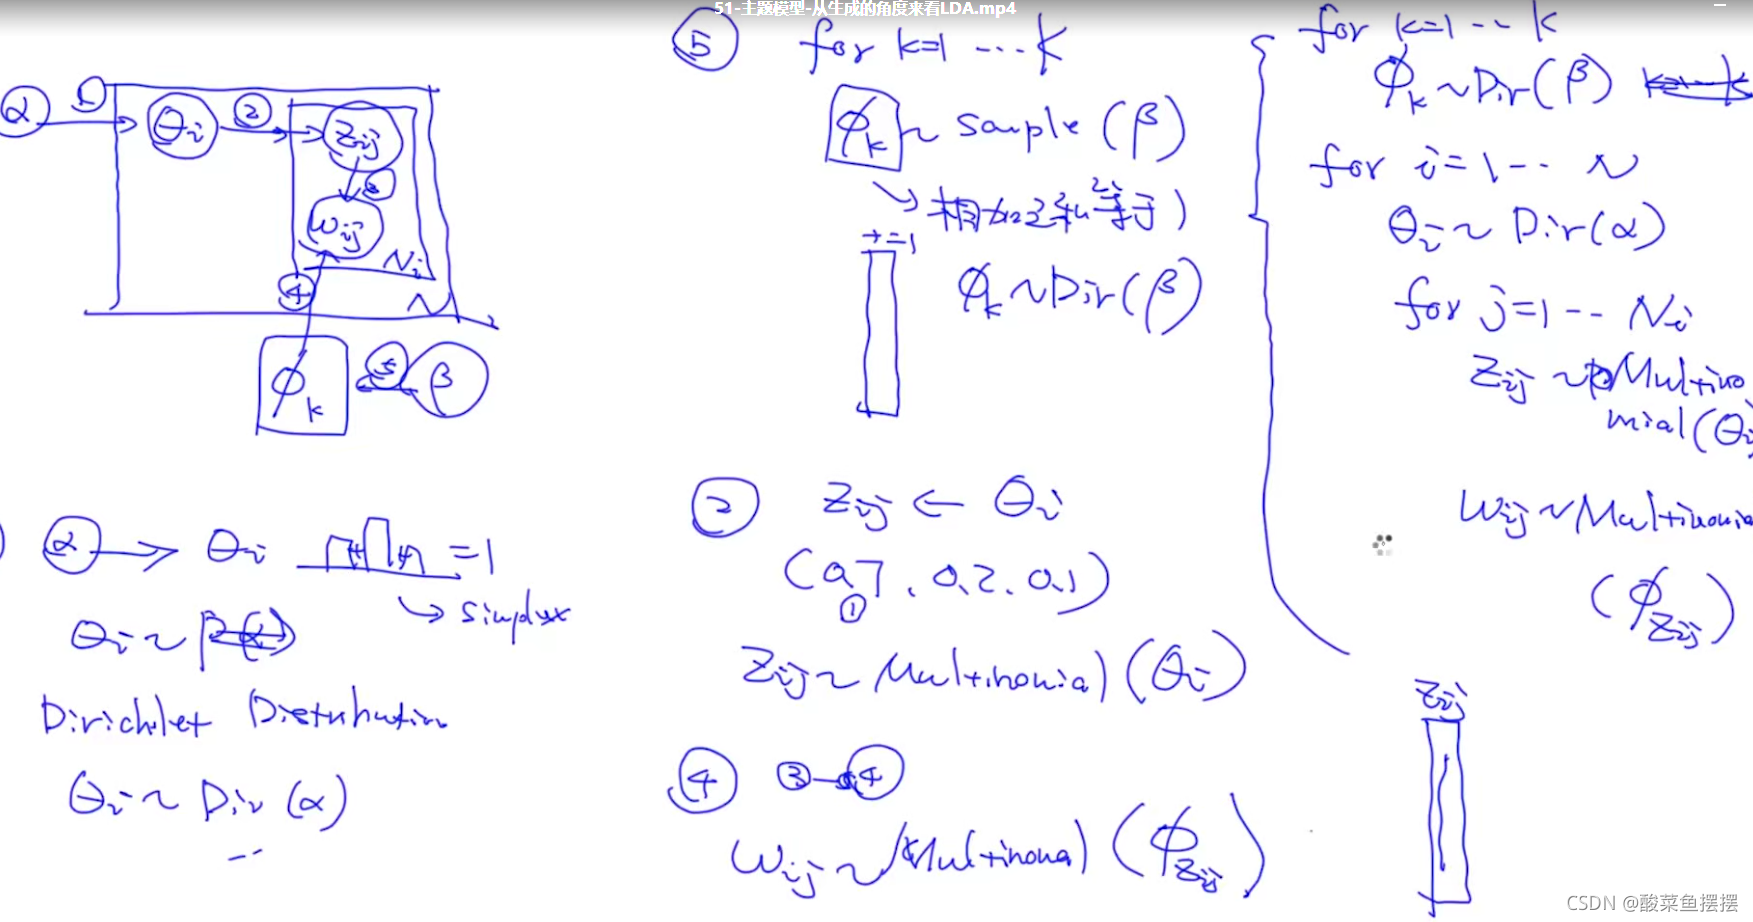 51-主题模型-从生成的角度来看LDA.mp4
α ① θi ② zij
③
wij
Ni
④
N
φk ⑤ β
② α → θi + + = 1
→ simplex
θi ~
Dirichlet Distribution
θi ~ Dir(α)
⑤ for k=1 ... K
φk ~ sample (β)
→ 相加之和等于1
+=1
φk ~ Dir(β)
② zij ← θi
(0.7, 0.2, 0.1)
①
zij ~ Multinomial (θi)
④ ③→④
wij ~ Multinomial (φzij)
for k=1 -- K
φk ~ Dir(β)
for i=1 -- N
θi ~ Dir(α)
for j=1 -- Ni
zij ~ Multino
mial(θi
wij ~ Multinomia
(φzij)
zij
CSDN @酸菜鱼摆摆